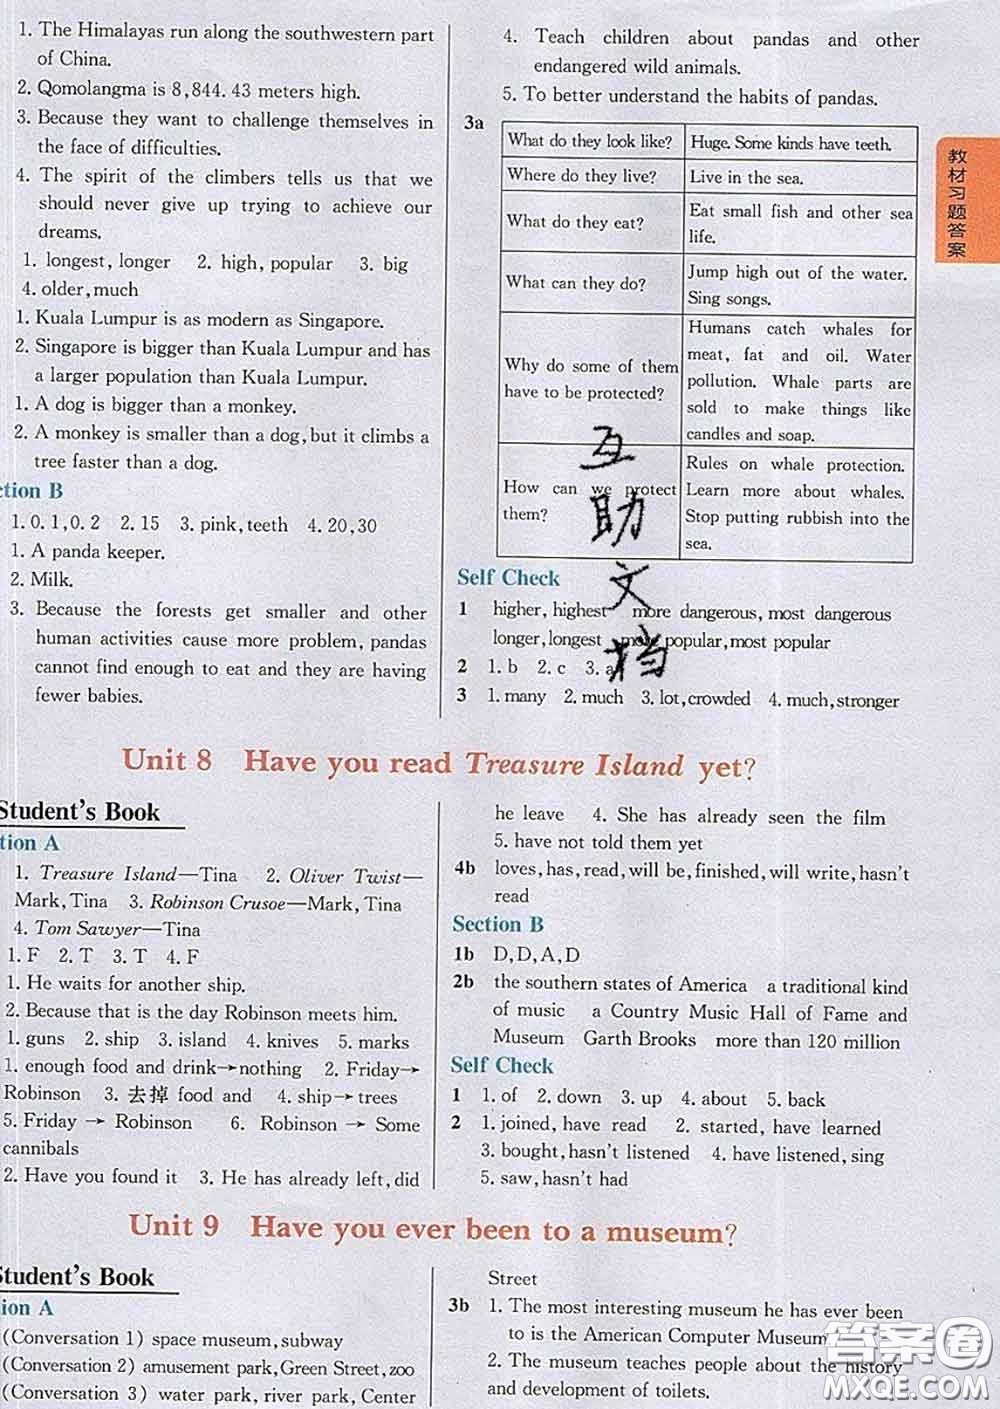 1. The Himalayas run along the southwestern part
of China.
2. Qomolangma is 8,844. 43 meters high.
3. Because they want to challenge themselves in
the face of difficulties.
4. The spirit of the climbers tells us that we
should never give up trying to achieve our
dreams.
1. longest, longer 2. high, popular 3. big
4. older, much
1. Kuala Lumpur is as modern as Singapore.
2. Singapore is bigger than Kuala Lumpur and has
a larger population than Kuala Lumpur.
1. A dog is bigger than a monkey.
2. A monkey is smaller than a dog, but it climbs a
tree faster than a dog.
ction B
1. 0. 1, 0. 2 2. 15 3. pink, teeth 4. 20, 30
1. A panda keeper.
2. Milk.
3. Because the forests get smaller and other
human activities cause more problem, pandas
cannot find enough to eat and they are having
fewer babies.
4. Teach children about pandas and other
endangered wild animals.
5. To better understand the habits of pandas.
3a
What do they look like? Huge. Some kinds have teeth.
Where do they live? Live in the sea.
What do they eat? Eat small fish and other sea
life.
What can they do? Jump high out of the water.
Sing songs.
Why do some of them
have to be protected?
Humans catch whales for
meat, fat and oil. Water
pollution. Whale parts are
sold to make things like
candles and soap.
How can we protect
them?
Rules on whale protection.
Learn more about whales.
Stop putting rubbish into the
sea.
Self Check
1 higher, highest more dangerous, most dangerous
longer, longest more popular, most popular
2 1. b 2. c 3. a
3 1. many 2. much 3. lot, crowded 4. much, stronger
教材习题答案
互助文档
Unit 8 Have you read Treasure Island yet?
Student's Book
tion A
1. Treasure Island—Tina 2. Oliver Twist—
Mark, Tina 3. Robinson Crusoe—Mark, Tina
4. Tom Sawyer—Tina
1. F 2. T 3. T 4. F
1. He waits for another ship.
2. Because that is the day Robinson meets him.
1. guns 2. ship 3. island 4. knives 5. marks
1. enough food and drink→nothing 2. Friday→
Robinson 3. 去掉 food and 4. ship→trees
5. Friday → Robinson 6. Robinson → Some
cannibals
2. Have you found it 3. He has already left, did
he leave 4. She has already seen the film
5. have not told them yet
4b loves, has, read, will be, finished, will write, hasn't
read
Section B
1b D, D, A, D
2b the southern states of America a traditional kind
of music a Country Music Hall of Fame and
Museum Garth Brooks more than 120 million
Self Check
1 1. of 2. down 3. up 4. about 5. back
2 1. joined, have read 2. started, have learned
3. bought, hasn't listened 4. have listened, sing
5. saw, hasn't had
Unit 9 Have you ever been to a museum?
Student's Book
tion A
(Conversation 1) space museum, subway
(Conversation 2) amusement park, Green Street, zoo
(Conversation 3) water park, river park, Center
Street
3b 1. The most interesting museum he has ever been
to is the American Computer Museum.
2. The museum teaches people about the history
and development of toilets.
答案圈
MXQE.COM